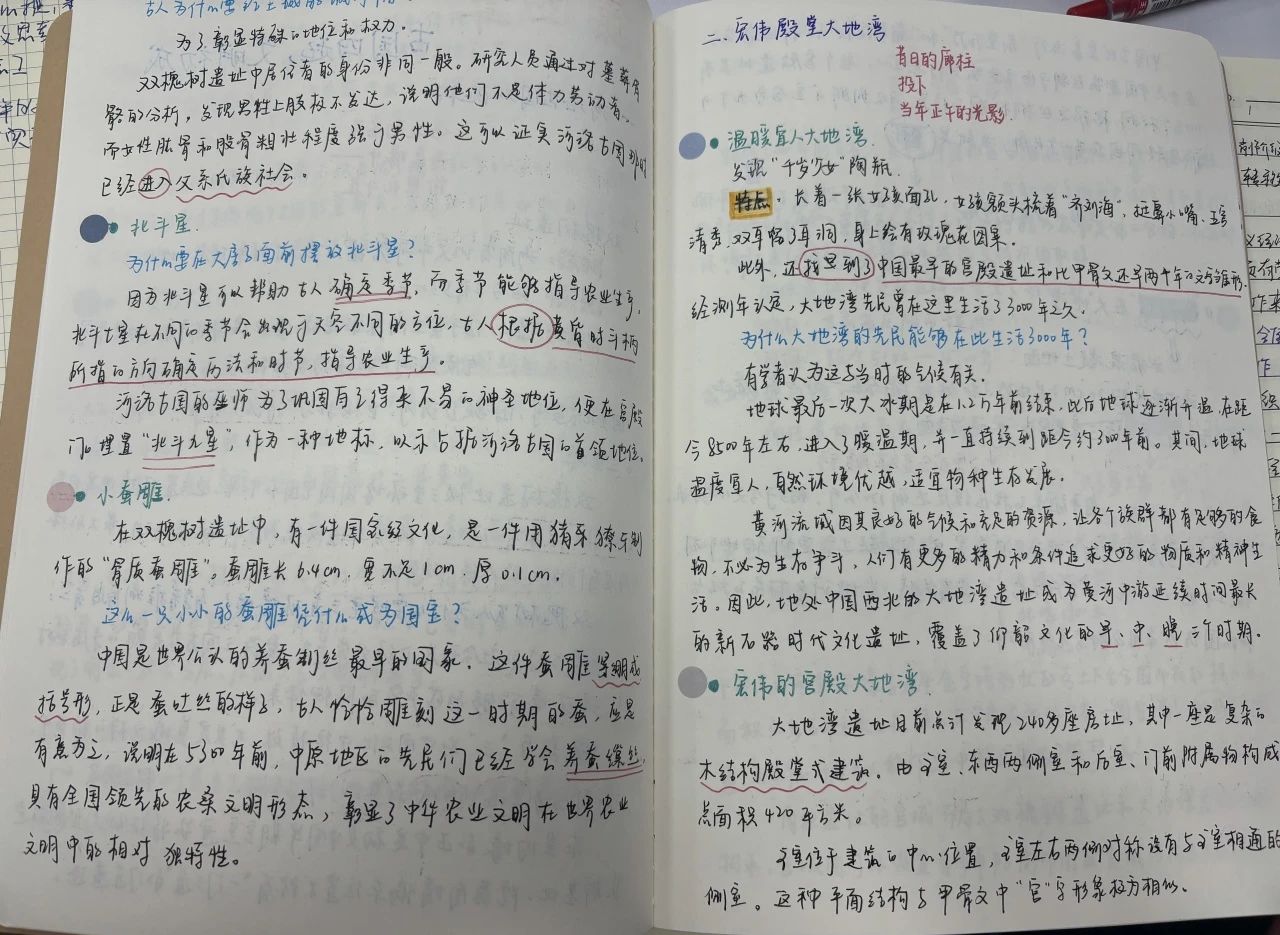 为了彰显特殊的地位和权力.
双槐树遗址中居住者的身份非同一般。研究人员通过对墓葬骨
骼的分析，发现男性上肢极不发达，说明他们不是体力劳动者，
而女性肱骨和股骨粗壮程度强于男性。这可以证实河洛古国那时
已经进入父系氏族社会。
北斗星.
为什么要在大房子面前摆放北斗星？
因为北斗星可以帮助古人确定季节，而季节能够指导农业生产，
北斗七星在不同的季节会出现于天空不同的方位，古人根据黄昏时斗柄
所指的方向确定历法和时节，指导农业生产。
河洛古国的巫师为了巩固自己得来不易的神圣地位，便在宫殿
门口埋置“北斗九星”，作为一种地标，以示占据河洛古国的首领地位。
小蚕雕.
在双槐树遗址中，有一件国家级文化，是一件用猪牙獠牙制
作的“骨质蚕雕”。蚕雕长6.4cm，宽不足1cm，厚0.1cm.
这么一只小小的蚕雕凭什么成为国宝？
中国是世界公认的养蚕制丝最早的国家。这件蚕雕呈绷成
括号形，正是蚕吐丝的样子，古人恰恰雕刻这一时期的蚕，应是
有意为之，说明在5300年前，中原地区的先民们已经学会养蚕缫丝，
具有全国领先的农桑文明形态，彰显了中华农业文明在世界农业
文明中的相对独特性。
二、宏伟殿堂大地湾
昔日的廊柱
投下
当年正午的光影
温暖宜人大地湾.
发现“千岁少女”陶瓶.
特点. 长着一张女孩面孔，女孩额头梳着“齐刘海”，挺鼻小嘴，五官
清秀，双耳留了耳洞，身上绘有玫瑰花图案。
此外，还找到了中国最早的宫殿遗址和比甲骨文还早两千年的文字雏形.
经测年认定，大地湾先民曾在这里生活了3000年之久.
为什么大地湾的先民能够在此生活3000年？
有学者认为这与当时的气候有关.
地球最后一次大冰期是在1.2万年前结束，此后地球逐渐升温，在距
今8500年左右，进入了暖温期，并一直持续到距今约300年前。其间，地球
温度宜人，自然环境优越，适宜物种生存发展.
黄河流域因其良好的气候和充足的资源，让各个族群都有足够的食
物，不必为生存争斗，人们有更多的精力和条件追求更好的物质和精神生
活。因此，地处中国西北的大地湾遗址成为黄河中游延续时间最长
的新石器时代文化遗址，覆盖了仰韶文化的早、中、晚三个时期.
宏伟的宫殿大地湾.
大地湾遗址目前总计发现240多座房址，其中一座是复杂的
木结构殿堂式建筑。由主室、东西两侧室和后室、门前附属物构成
总面积420平方米。
主室位于建筑的中心位置，主室左右两侧对称设有与主室相通的
侧室。这种平面结构与甲骨文中“宫”字形象极为相似.